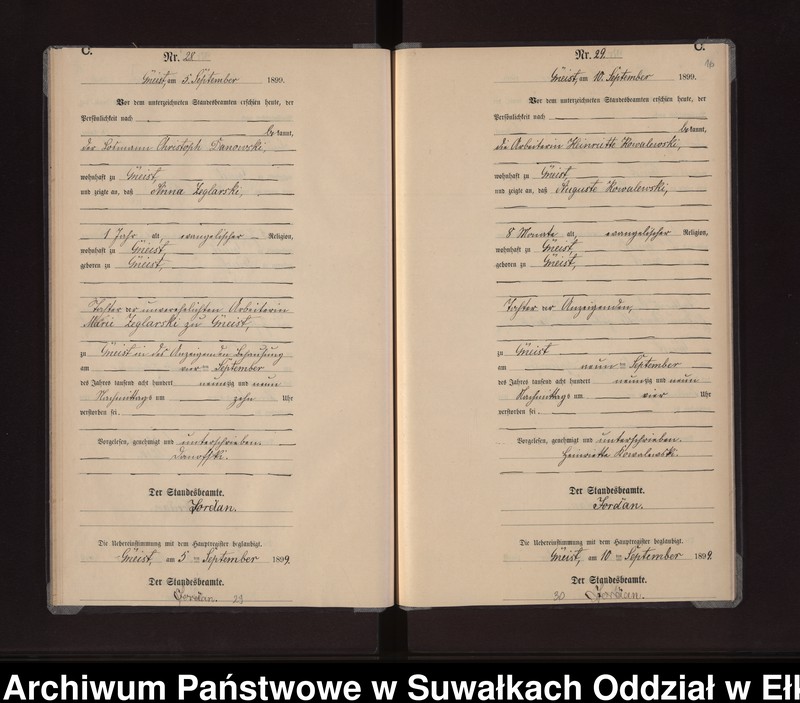 C.
Nr. 28
Gneist, am 5. September 1899.
Vor dem unterzeichneten Standesbeamten erschien heute, der
Persönlichkeit nach
be kannt,
der Losmann Christoph Danowski,
wohnhaft zu Gneist,
und zeigte an, daß Anna Zeglarski,
1 Jahr alt, evangelischer Religion,
wohnhaft zu Gneist,
geboren zu Gneist,
Tochter der unverehelichten Arbeiterin
Marie Zeglarski zu Gneist,
zu Gneist in des Anzeigenden Behausung
am vier ten September
des Jahres tausend acht hundert neunzig und neun
Nachmittags um zehn Uhr
verstorben sei.
Vorgelesen, genehmigt und unterschrieben.
Danofski.
Der Standesbeamte.
Jordan.
Die Uebereinstimmung mit dem Hauptregister beglaubigt.
Gneist, am 5 ten September 1899.
Der Standesbeamte.
Jordan. 29
C.
10
Nr. 29.
Gneist, am 10. September 1899.
Vor dem unterzeichneten Standesbeamten erschien heute, der
Persönlichkeit nach
be kannt,
die Arbeiterin Henriette Kowalewski,
wohnhaft zu Gneist,
und zeigte an, daß Auguste Kowalewski,
8 Monate alt, evangelischer Religion,
wohnhaft zu Gneist,
geboren zu Gneist,
Tochter der Anzeigenden,
zu Gneist
am neun ten September
des Jahres tausend acht hundert neunzig und neun
Nachmittags um vier Uhr
verstorben sei.
Vorgelesen, genehmigt und unterschrieben.
Henriette Kowalewski.
Der Standesbeamte.
Jordan.
Die Uebereinstimmung mit dem Hauptregister beglaubigt.
Gneist, am 10 ten September 1899.
Der Standesbeamte.
30 Jordan.
Archiwum Państwowe w Suwałkach Oddział w Ełk